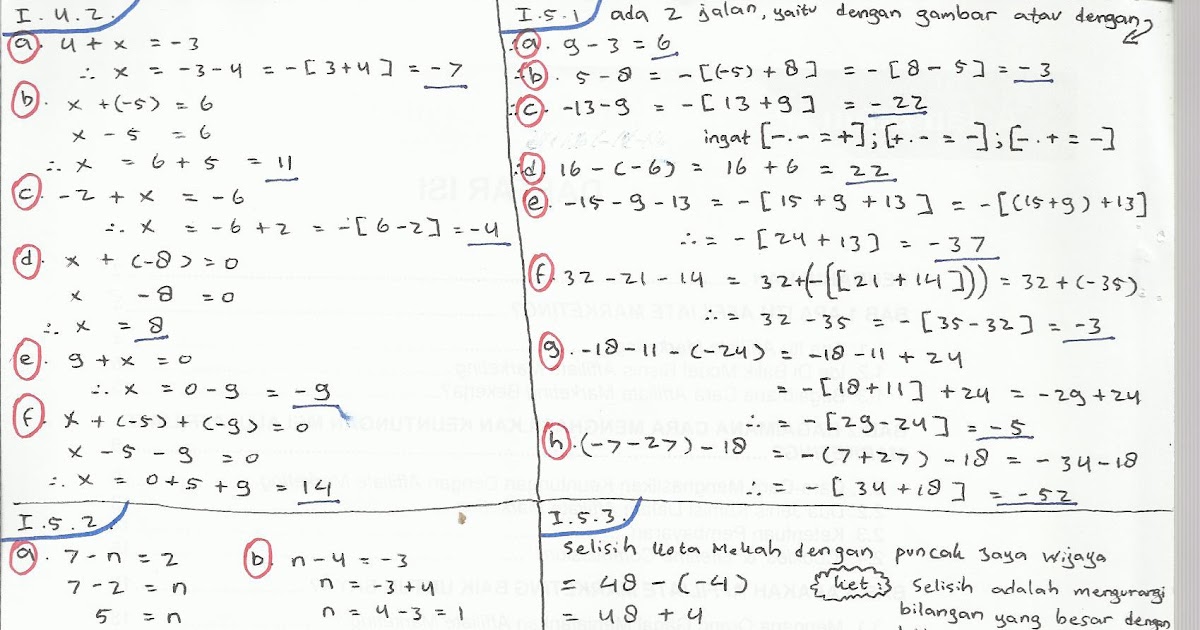 I.4.2.
a. 4 + x = -3
∴ x = -3-4 = -[3+4] = -7
b. x +(-5) = 6
x - 5 = 6
∴ x = 6 + 5 = 11
c. -2 + x = -6
∴ x = -6 + 2 = -[6-2] = -4
d. x + (-8) = 0
x - 8 = 0
∴ x = 8
e. 9 + x = 0
∴ x = 0-9 = -9
f. x + (-5) + (-9) = 0
x - 5 - 9 = 0
∴ x = 0+5+9 = 14
I.5.1 ada 2 jalan, yaitu dengan gambar atau dengan
a. 9 - 3 = 6
b. 5 - 8 = -[(-5) + 8] = -[8 - 5] = -3
c. -13-9 = -[13+9] = -22
ingat [-.- = +]; [+.- = -]; [-.+ = -]
d. 16 - (-6) = 16 + 6 = 22
e. -15-9-13 = -[15+9+13] = -[(15+9)+13]
∴ = -[24+13] = -37
f. 32-21-14 = 32+(-([21+14])) = 32+(-35)
∴ = 32-35 = -[35-32] = -3
g. -18-11-(-24) = -18-11+24
= -[18+11] +24 = -29+24
∴ = -[29-24] = -5
h. (-7-27)-18 = -(7+27)-18 = -34-18
∴ = -[34+18] = -52
I.5.2.
a. 7-n = 2
7-2 = n
5 = n
b. n-4 = -3
n = -3+4
n = 4-3 = 1
I.5.3.
Selisih kota Mekah dengan puncak Jaya wijaya
= 48 - (-4)
= 48 + 4
ket: Selisih adalah mengurangi
bilangan yang besar dengan